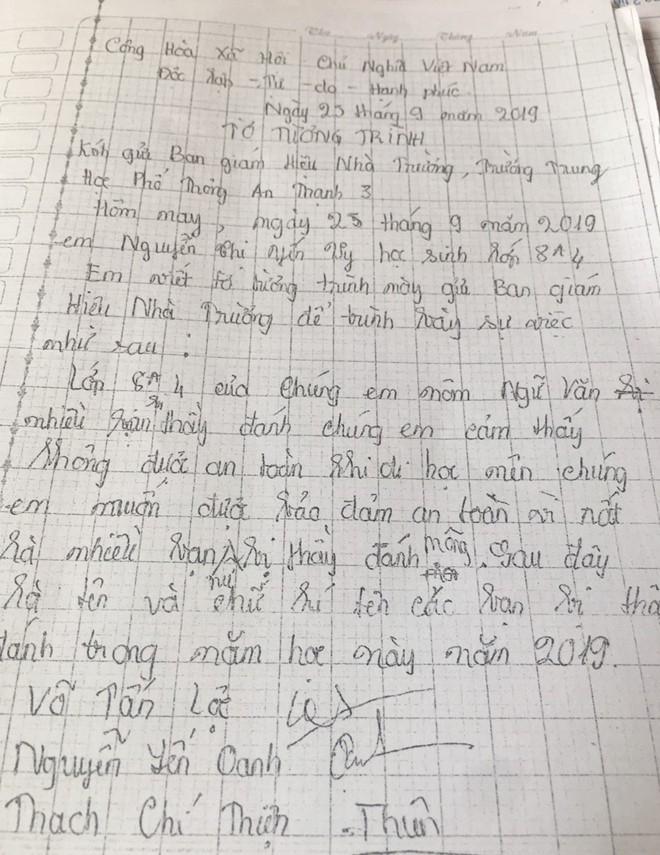 Thứ Ngày Tháng Năm
Cộng Hòa Xã Hội Chủ Nghĩa Việt Nam
Độc lập - Tự - do - Hạnh phúc
Ngày 25 tháng 9 năm 2019
TỜ TƯỜNG TRÌNH
Kính gửi Ban giám Hiệu Nhà Trường, Trường Trung
Học Phổ Thông An Thạnh 3
Hôm nay, ngày 25 tháng 9 năm 2019
em Nguyễn Thị Yến học sinh lớp 8A4
Em viết tờ tường trình này gửi Ban giám
Hiệu Nhà Trường để trình bày sự việc
như sau:
Lớp 8A4 của chúng em môn Ngữ Văn bị
nhiều bạn thầy đánh chúng em cảm thấy
không được an toàn khi đi học nên chúng
em muốn được bảo đảm an toàn vì rất
là nhiều bạn bị thầy đánh mông. Sau đây
là tên và chữ kí tên các bạn bị thầ
đánh trong năm học này năm 2019.
Võ Tấn Lộc Lộc
Nguyễn Yến Oanh
Thạch Chí Thiện Thiện